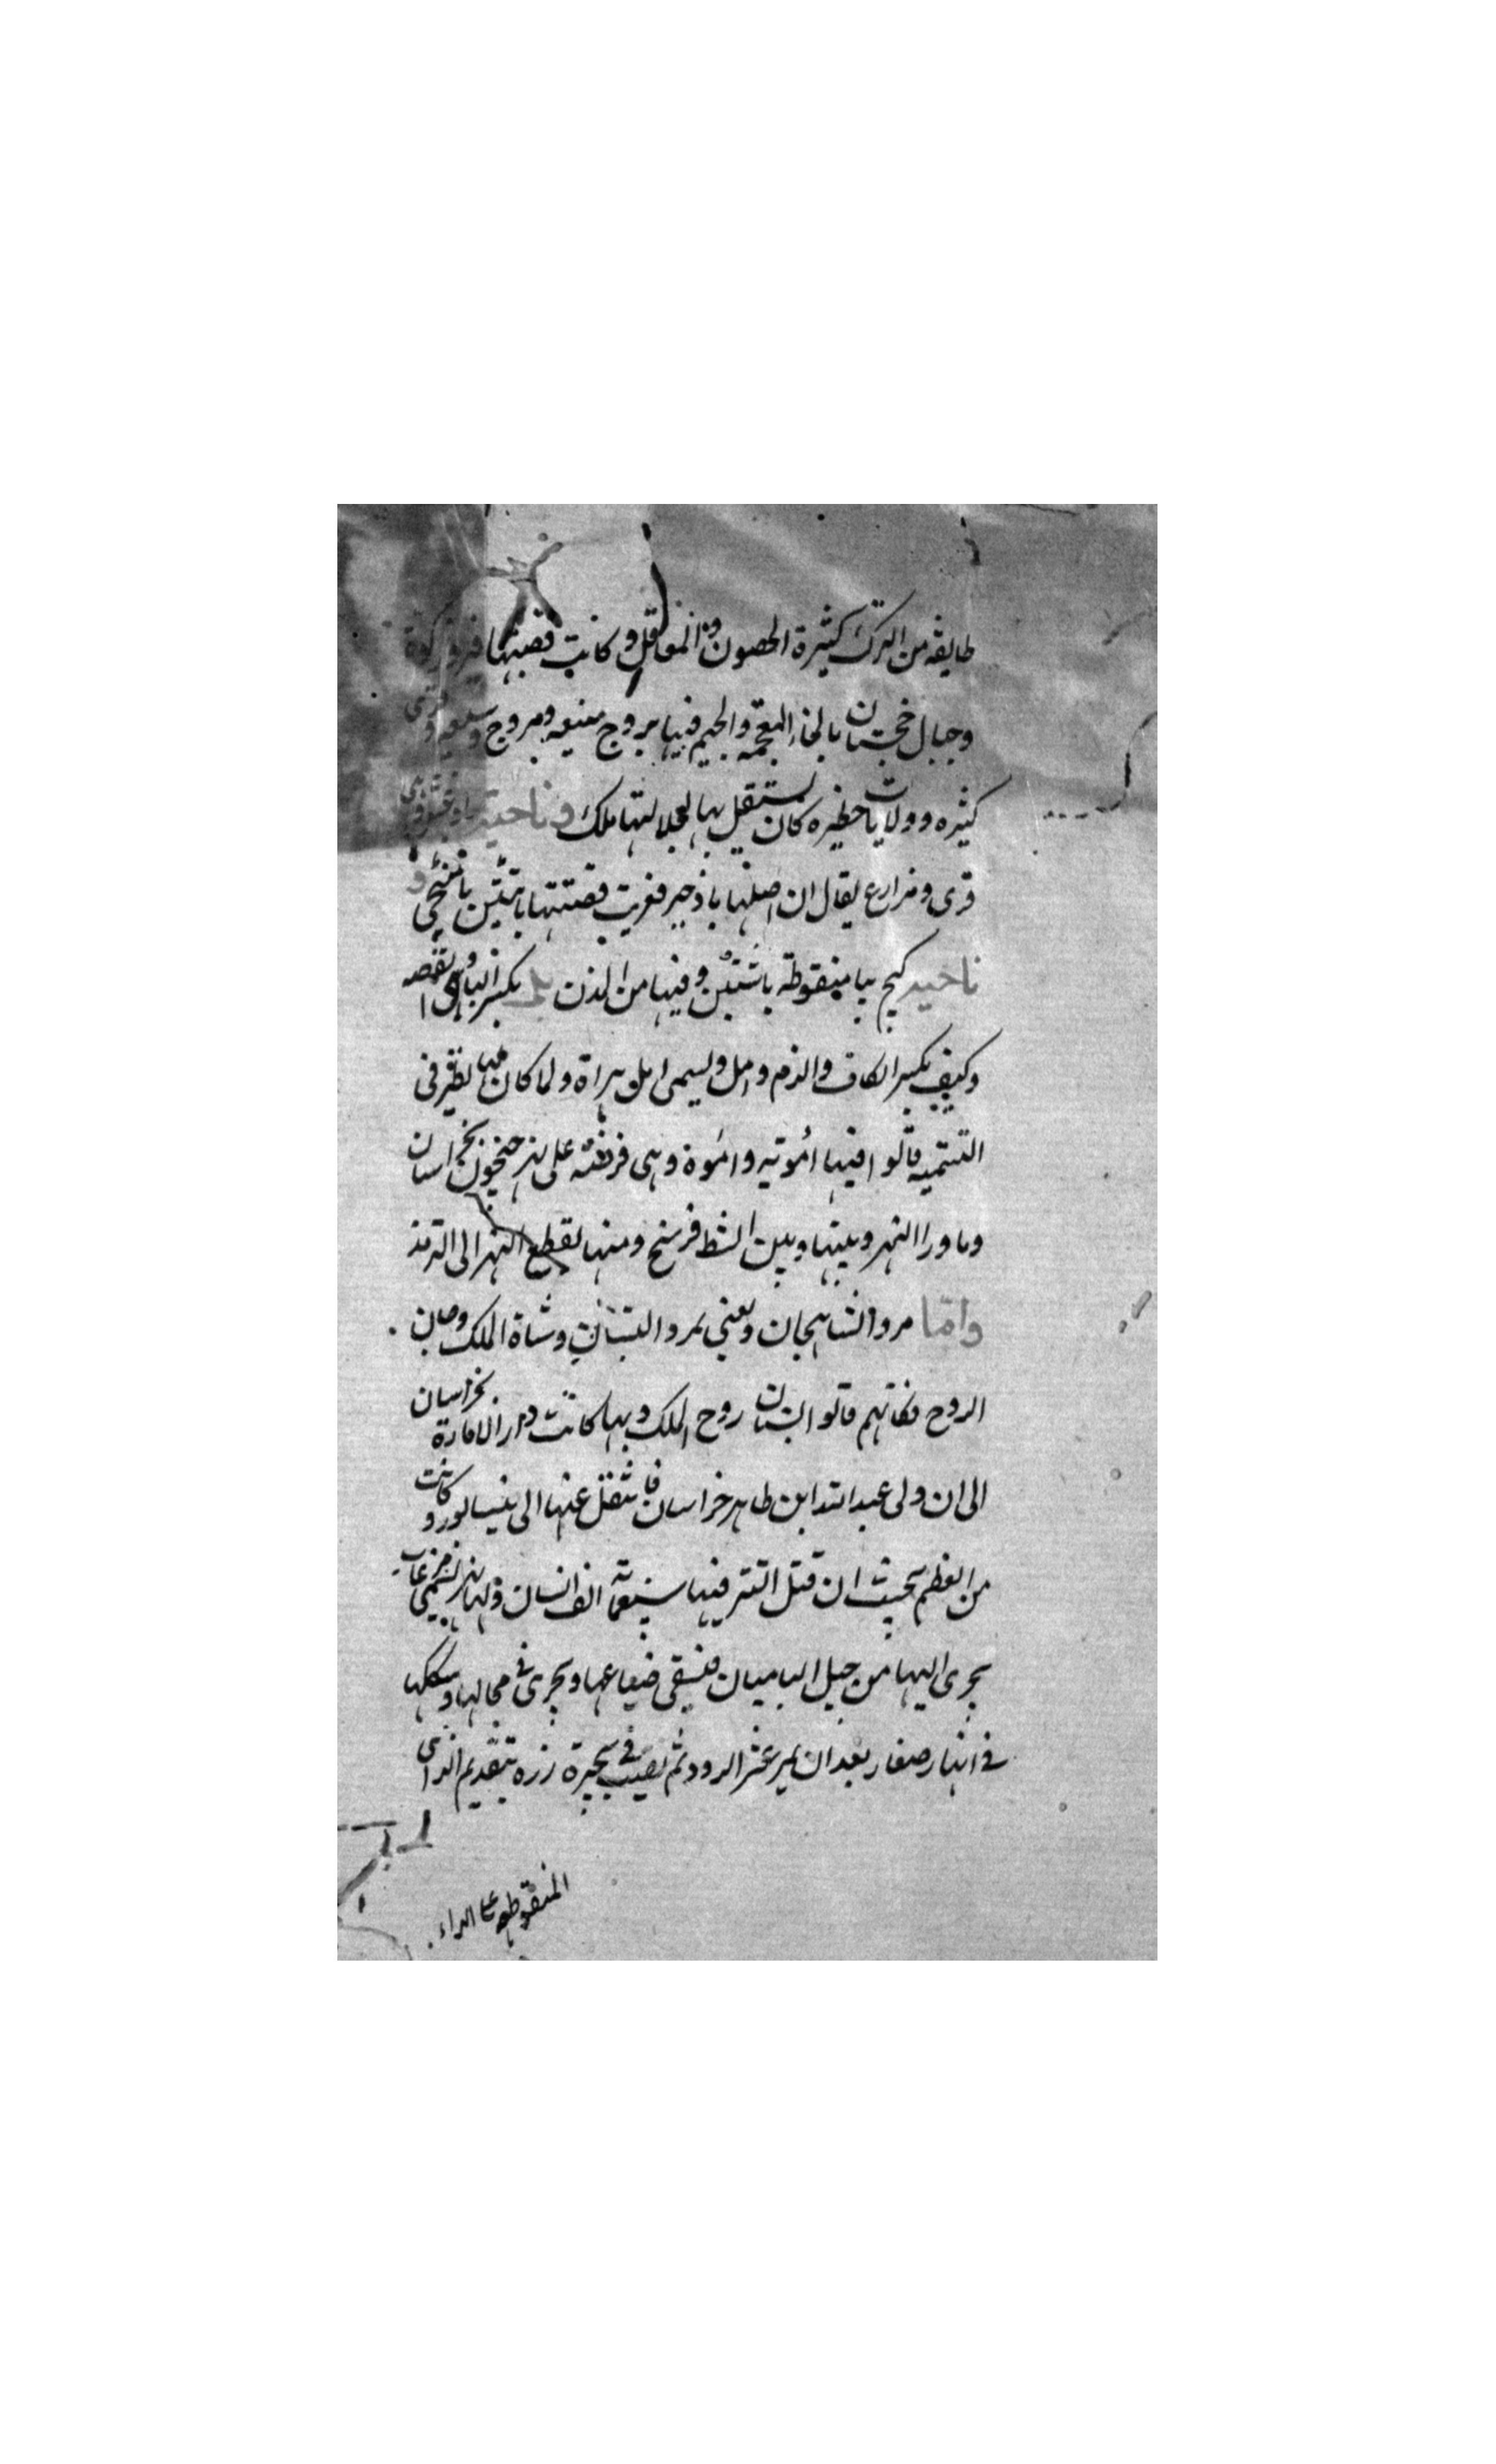 طايفه من الترك كثيرة الحصون والمعاقل وكانت قصبتها فيروزكوة
وجبال خجستان بالخاء المعجمه والجيم فيها بروج منيعه ومروج وسيعه وقرى
كثيره وولايات خطيره كان يستقل بها لجلالتها ملك وناحية
قرى ومزارع يقال ان اصلها باذخير فغربت قصبتها بابتين
ناحية كيج بيا منقوطة باثنتين وفيها من المدن بكسر البا
وكيف بكسر الكاف والذم وامل ويسمى امل هراة ولما كان لها نظير فى
التسميه قالوا فيها امويه واموة وهى فرضة على نهر جيحون بخراسان
وماورا النهر وبينها وبين الشط فرسخ ومنها يقطع النهر الى الترمذ
واما مرو الشاهجان ويعنى بمرو البستان وشاة الملك وجان
الروح فكانهم قالوا البستان روح الملك وبها كانت دار الامارة بخراسان
الى ان ولى عبد الله ابن طاهر خراسان فانتقل عنها الى نيسابور وكانت
من العظم بحيث ان قتل التتر فيها سبعماية الف انسان ولها نهر يسمى مرغاب
يجرى اليها من جبل الباميان فيسقى ضياعها ويجرى فى محالها وسككها
فى انهار صغار بعد ان يمر بمرو الرود ثم يصب فى بحيرة زره بتقديم الزاى
المنقوطه على الراء